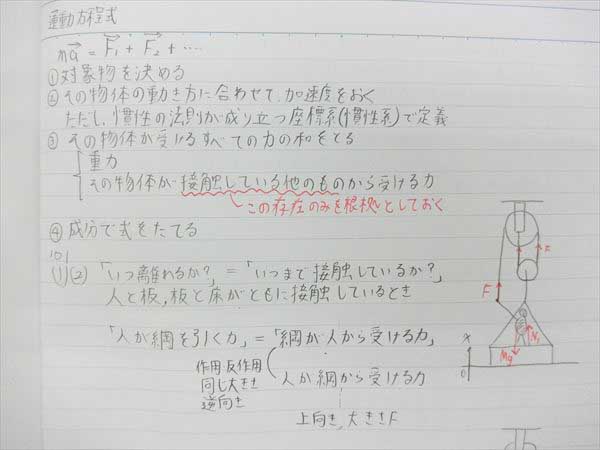 運動方程式
ma = F1 + F2 + ‥‥
①対象物を決める
②その物体の動き方に合わせて、加速度をおく
ただし、慣性の法則が成り立つ座標系(慣性系)で定義
③その物体が受けるすべての力の和をとる
重力
その物体が接触している他のものから受ける力
この存在のみを根拠としておく
④成分で式をたてる
101
(1)(2) 「いつ離れるか?」=「いつまで接触しているか?」
人と板,板と床がともに接触しているとき
「人が綱を引く力」=「綱が人から受ける力」
作用・反作用
同じ大きさ
逆向き
人が綱から受ける力
上向き,大きさF
F
F
x
0
Mg
N1